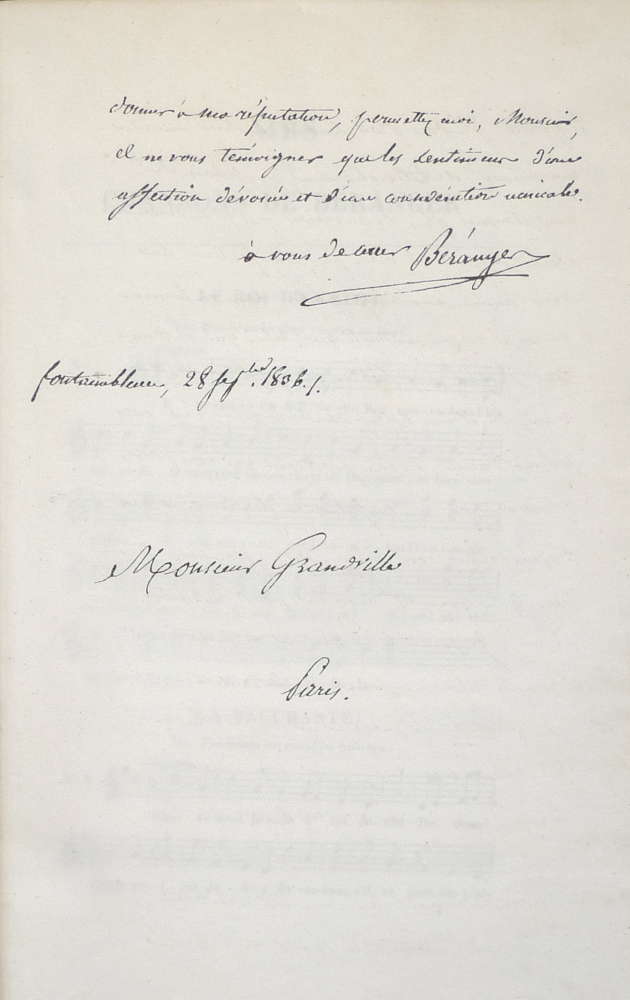 donner à ma réputation, permettez moi, Monsieur,
et ne vous témoigner que les sentimens d'une
affection dévouée et d'une considération amicale.
à vous de cœur Béranger
fontainebleau, 28 sepbre. 1836./.
Monsieur Grandville
Paris.